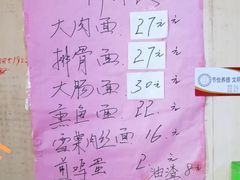 大肉面 27元
排骨面 27元
大肠面 30元
熏鱼面 22元
雪菜肉丝面 16元
荷包蛋 2元
油渣 8元
节俭养德 文明